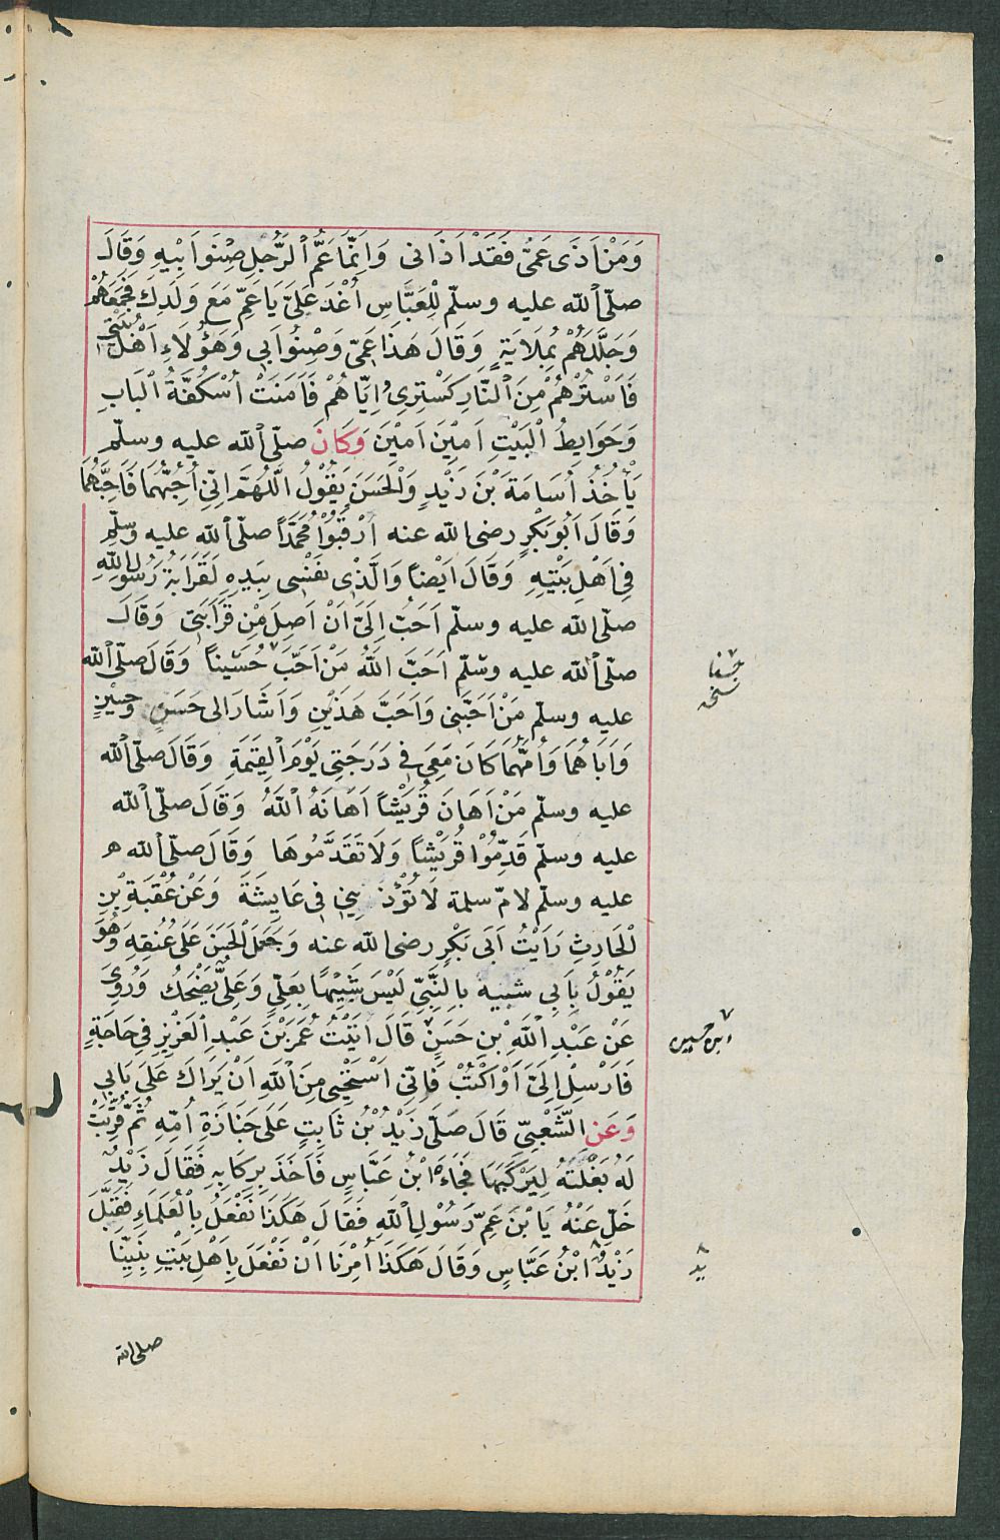 وَمَنْ اَذَى عَمّىِ فَقَدْ اَذَانى وَاِنَّمَا عَمُّ الرَّجُلِ صِنَوا بْيِهِ وَقَالَ
صلّى الله عليه وسلّم لِلْعَبَّاسِ اُغْدَ عَلَىَّ يَا عَمِّ مَعَ وَلَدِكَ فَجَمَعَهُمْ
وَجَلَّلَهُمْ بِمُلَايَةٍ وَقَالَ هَذَا عَمّىِ وَصِنْوُ اَبى وَهَؤُلَاءِ اَهْلُ بَيْتِى
فَاَسْتُرْهُمْ مِنَ النَّارِ كَسْتِرِىْ اِيَّاهُمْ فَاَمَنَتْ اُسْكُفَّةُ الْبَابِ
وَحَوَايِطُ الْبَيْتِ اَمِيْنَ اَمِيْنَ وَكَانَ صلّى الله عليه وسلّم
يَأْخُذُ اُسَامَةَ بْنَ زَيْدٍ وَالْحَسَنَ يَقُوْلُ اللَّهُمَّ اِنّىِ اُحِبُّهُمَا فَاَحِبَّهُمَا
وَقَالَ اَبُو بَكْرٍ رضى الله عنه اُرْقُبُوْا مُحَمَّدًا صلّى الله عليه وسلّم
فِى اَهْلِ بَيْتِهِ وَقَالَ اَيْضًا وَالَّذْى نَفْسِى بِيَدِهِ لَقَرَابَةُ رَسُولِ اللهِ
صلّى الله عليه وسلّم اَحَبُّ اِلَىَّ اَنْ اَصِلَ مِنْ قَرَابَتِى وَقَالَ
صلّى الله عليه وسلّم اَحَبَّ اللهُ مَنْ اَحَبَّ حُسَيْنًا وَقَالَ صلّى الله
حسنا
نسخه
عليه وسلّم مَنْ اَحَبَّنِى وَاَحَبَّ هَذَيْنِ وَاَشَارَ الى حَسَنٍ وحسَيْنٍ
وَاَبَاهُمَا وَاُمَّهُمَا كَانَ مَعِى فِى دَرَجَتِى يَوْمَ الْقِيَمَةِ وَقَالَ صلّى الله
عليه وسلّم مَنْ اَهَانَ قُرَيْشًا اَهَانَهُ اللهُ وَقَالَ صلّى الله
عليه وسلّم قَدِّمُوْا قُرَيْشًا وَلَا تَقَدَّمُوهَا وَقَالَ صلّى الله
عليه وسلّم لامّ سلمة لَا تُؤْذِينِى فِى عَايِشَةَ وَعَنْ عُقْبَةَ بْنِ
الْحَارِثِ رَاَيْتُ اَبَى بَكْرٍ رضى الله عنه وَجَعَلَ الْحَسَنَ عَلَى عُنِقِهِ وَهُوَ
يَقُوْلُ بِاَبِى شبيه بِالنَّبِىِّ لَيْسَ شَبِيْهًا بِعَلِىٍّ وَعَلِىٌّ يَضْحَكُ وَرُوِىَ
عَنْ عَبْدِ اللهِ بْنِ حَسَنٍ قَالَ اَتَيْتُ عُمَرَ بْنَ عَبْدِ الْعَزِيْزِ فِى حَاجَةٍ
ابن حسين
فَاَرْسِلْ اِلَىَّ اَوْ اكْتُبْ فَاِنّىِ اَسْتَحْيِى مِنَ اللهِ اَنْ يَرَاكَ عَلَى بَابِى
وَعَنِ الشَّعْبِىِّ قَالَ صَلَّى زَيْدُ بْنُ ثَابِتٍ عَلَى جَنَازَةِ اُمِّهِ ثُمَّ قُرِّبَتْ
لَهُ بَغْلَتُهُ لِيَرْكَبَهَا فَجَاءَ ابْنُ عَبَّاسٍ فَاَخَذَ بِرِكَابِهِ فَقَالَ زَيْدٌ
خَلِّ عَنْهُ يَا بْنَ عَمِّ رَسُوْلِ اللهِ فَقَالَ هَكَذَا نَفْعَلُ بِالْعُلَمَاءِ فَقَبَّلَ
زَيْدٌ ابْنُ عَبَّاسٍ وَقَالَ هَكَذَا اُمِرْنَا اَنْ نَفْعَلَ بِاَهْلِ بَيْتِ نَبِيِّنَا
يد
صلى الله